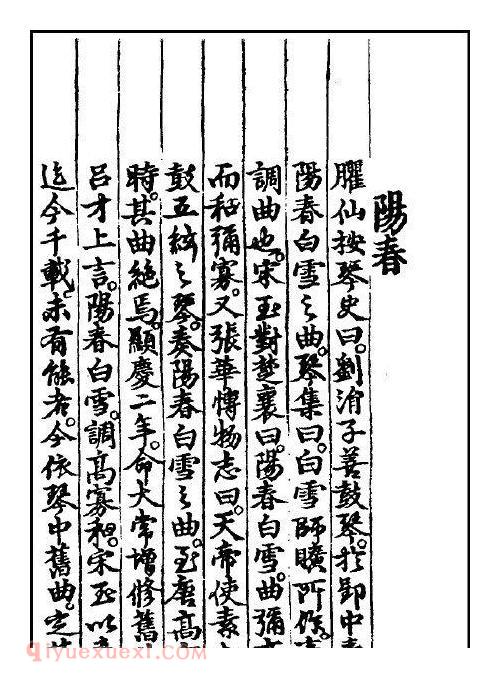 陽春
臞仙按琴史曰劉涓子善鼓琴於郢中
陽春白雪之曲琴集曰白雪師曠所作
調曲也宋玉對楚襄曰陽春白雪曲彌
而和彌寡又張華博物志曰天帝使素
鼓五絃之琴奏陽春白雪之曲至唐高
時其曲絕焉顯慶二年命大常增修舊
呂才上言陽春白雪調高寡和宋玉以
迄今千載未有能者今依琴中舊曲定
qiyuexuexi.COM